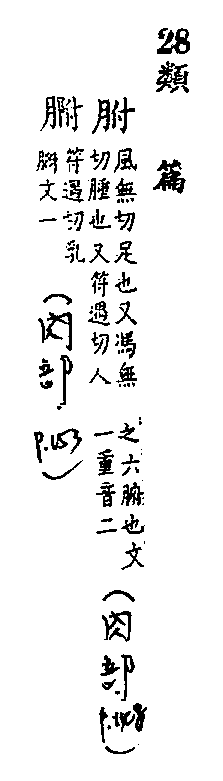 28 類篇
胕 風無切足也又馮無
切腫也又符遇切人
之六腑也文
一重音二
(肉部 p.148)
符遇切乳
文一
(肉部. p.153)